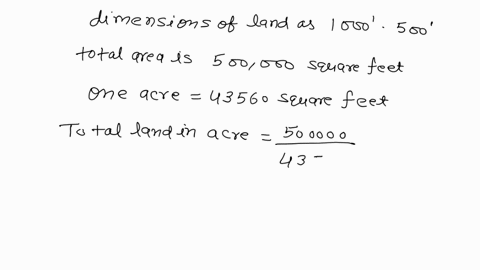 dimensions of land as 1000' · 500'
total area is 500,000 square feet
one acre = 43560 square feet
Total land in acre = 500000
43-